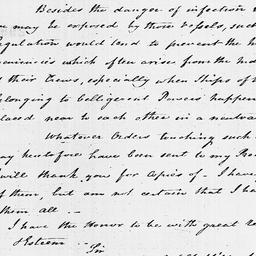 Besides the danger of infection
may be exposed by those Vessels, such
Regulation would tend to prevent the
veniencies which often arises from the
their Crews, especially when Ships of
belonging to belligerent Powers happen
placed near to each other in a neutral
Whatever Orders touching such
may heretofore have been sent to my
will thank you for Copies of - I have
of them, but am not certain that I ha
them all. -
I have the Honor to be with great Re
Esteem
Sir